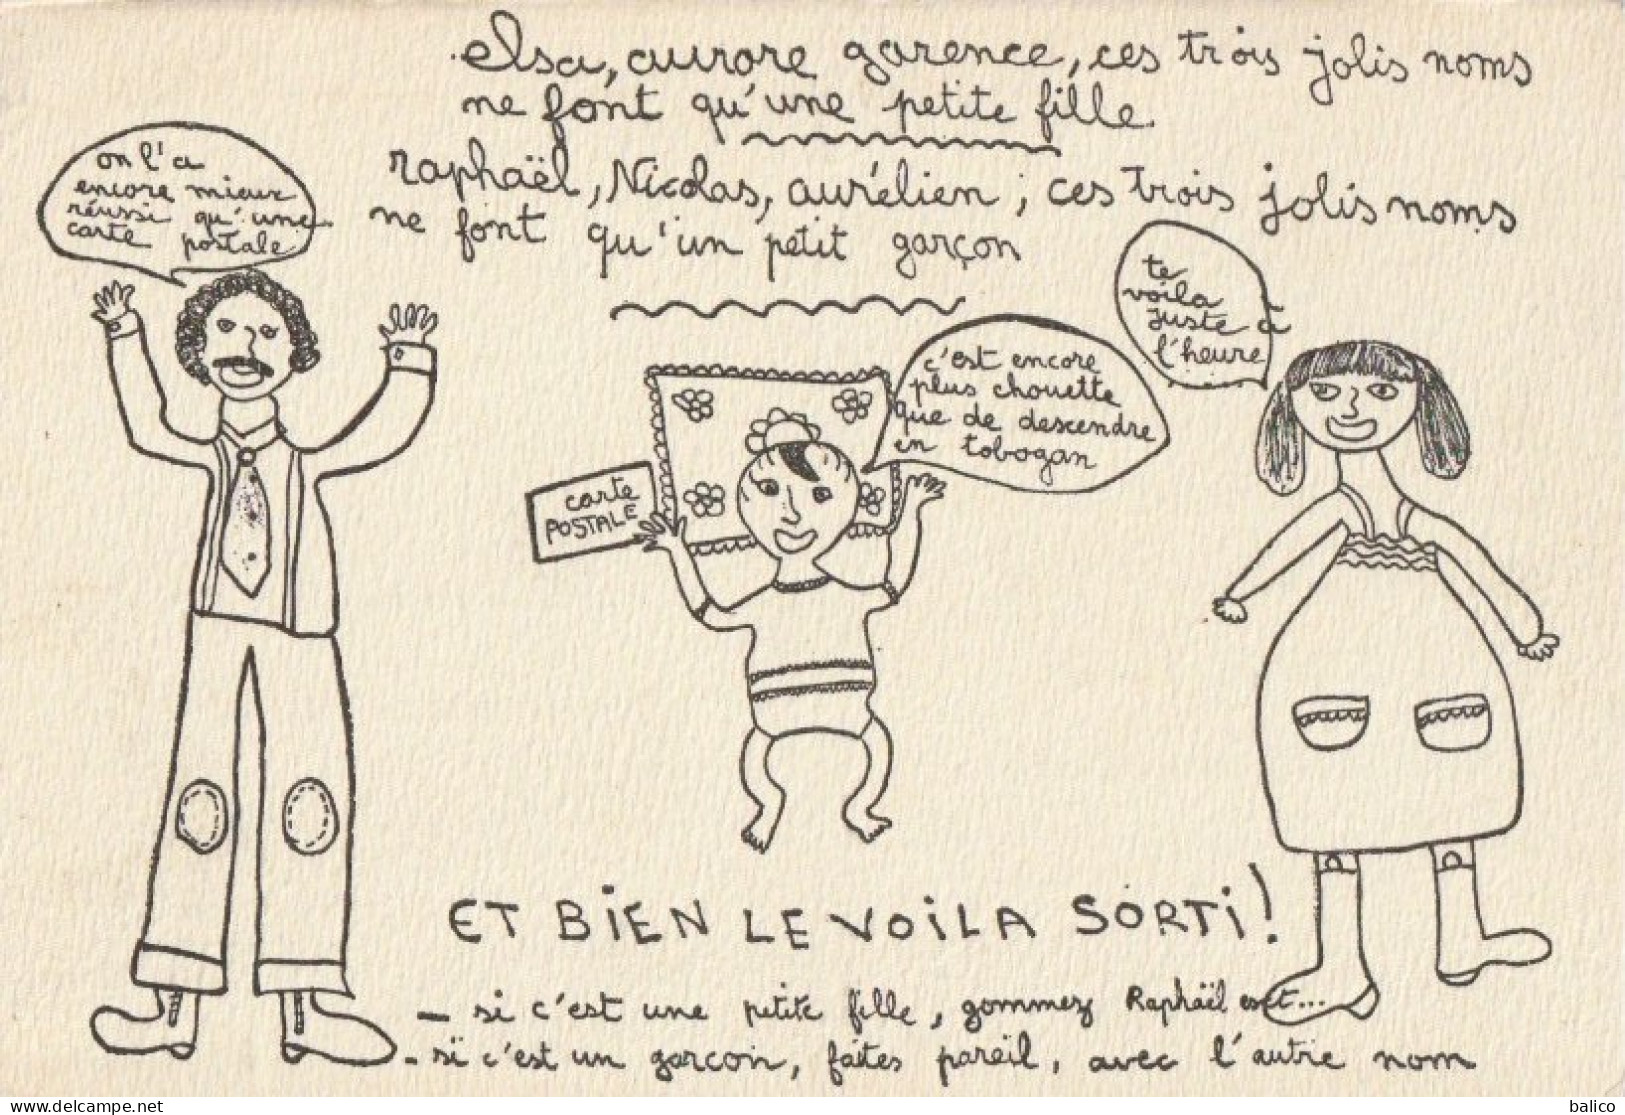 elsa, aurore garence, ces trois jolis noms
ne font qu'une petite fille
raphaël, Nicolas, aurélien, ces trois jolis noms
ne font qu'un petit garçon
on l'a
encore mieux
réussi qu'une
carte postale
te
voila
juste à
l'heure
c'est encore
plus chouette
que de descendre
en tobogan
carte
POSTALE
ET BIEN LE VOILA SORTI!
- si c'est une petite fille, gommez Raphaël est...
- si c'est un garcon, faites pareil, avec l'autre nom
Delcampe.net
balico